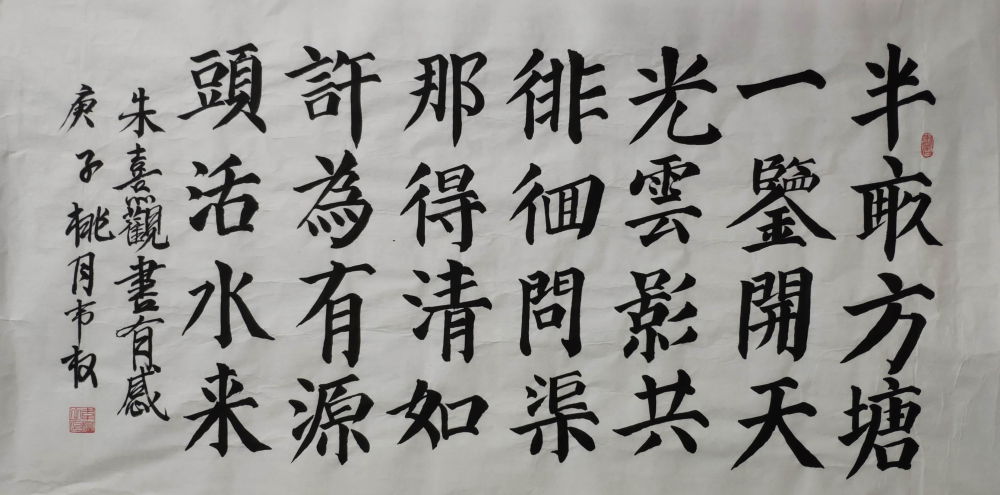 半畝方塘
一鑒開天
光雲影共
徘徊問渠
那得清如
許為有源
頭活水来
朱熹觀書有感
庚子桃月市权